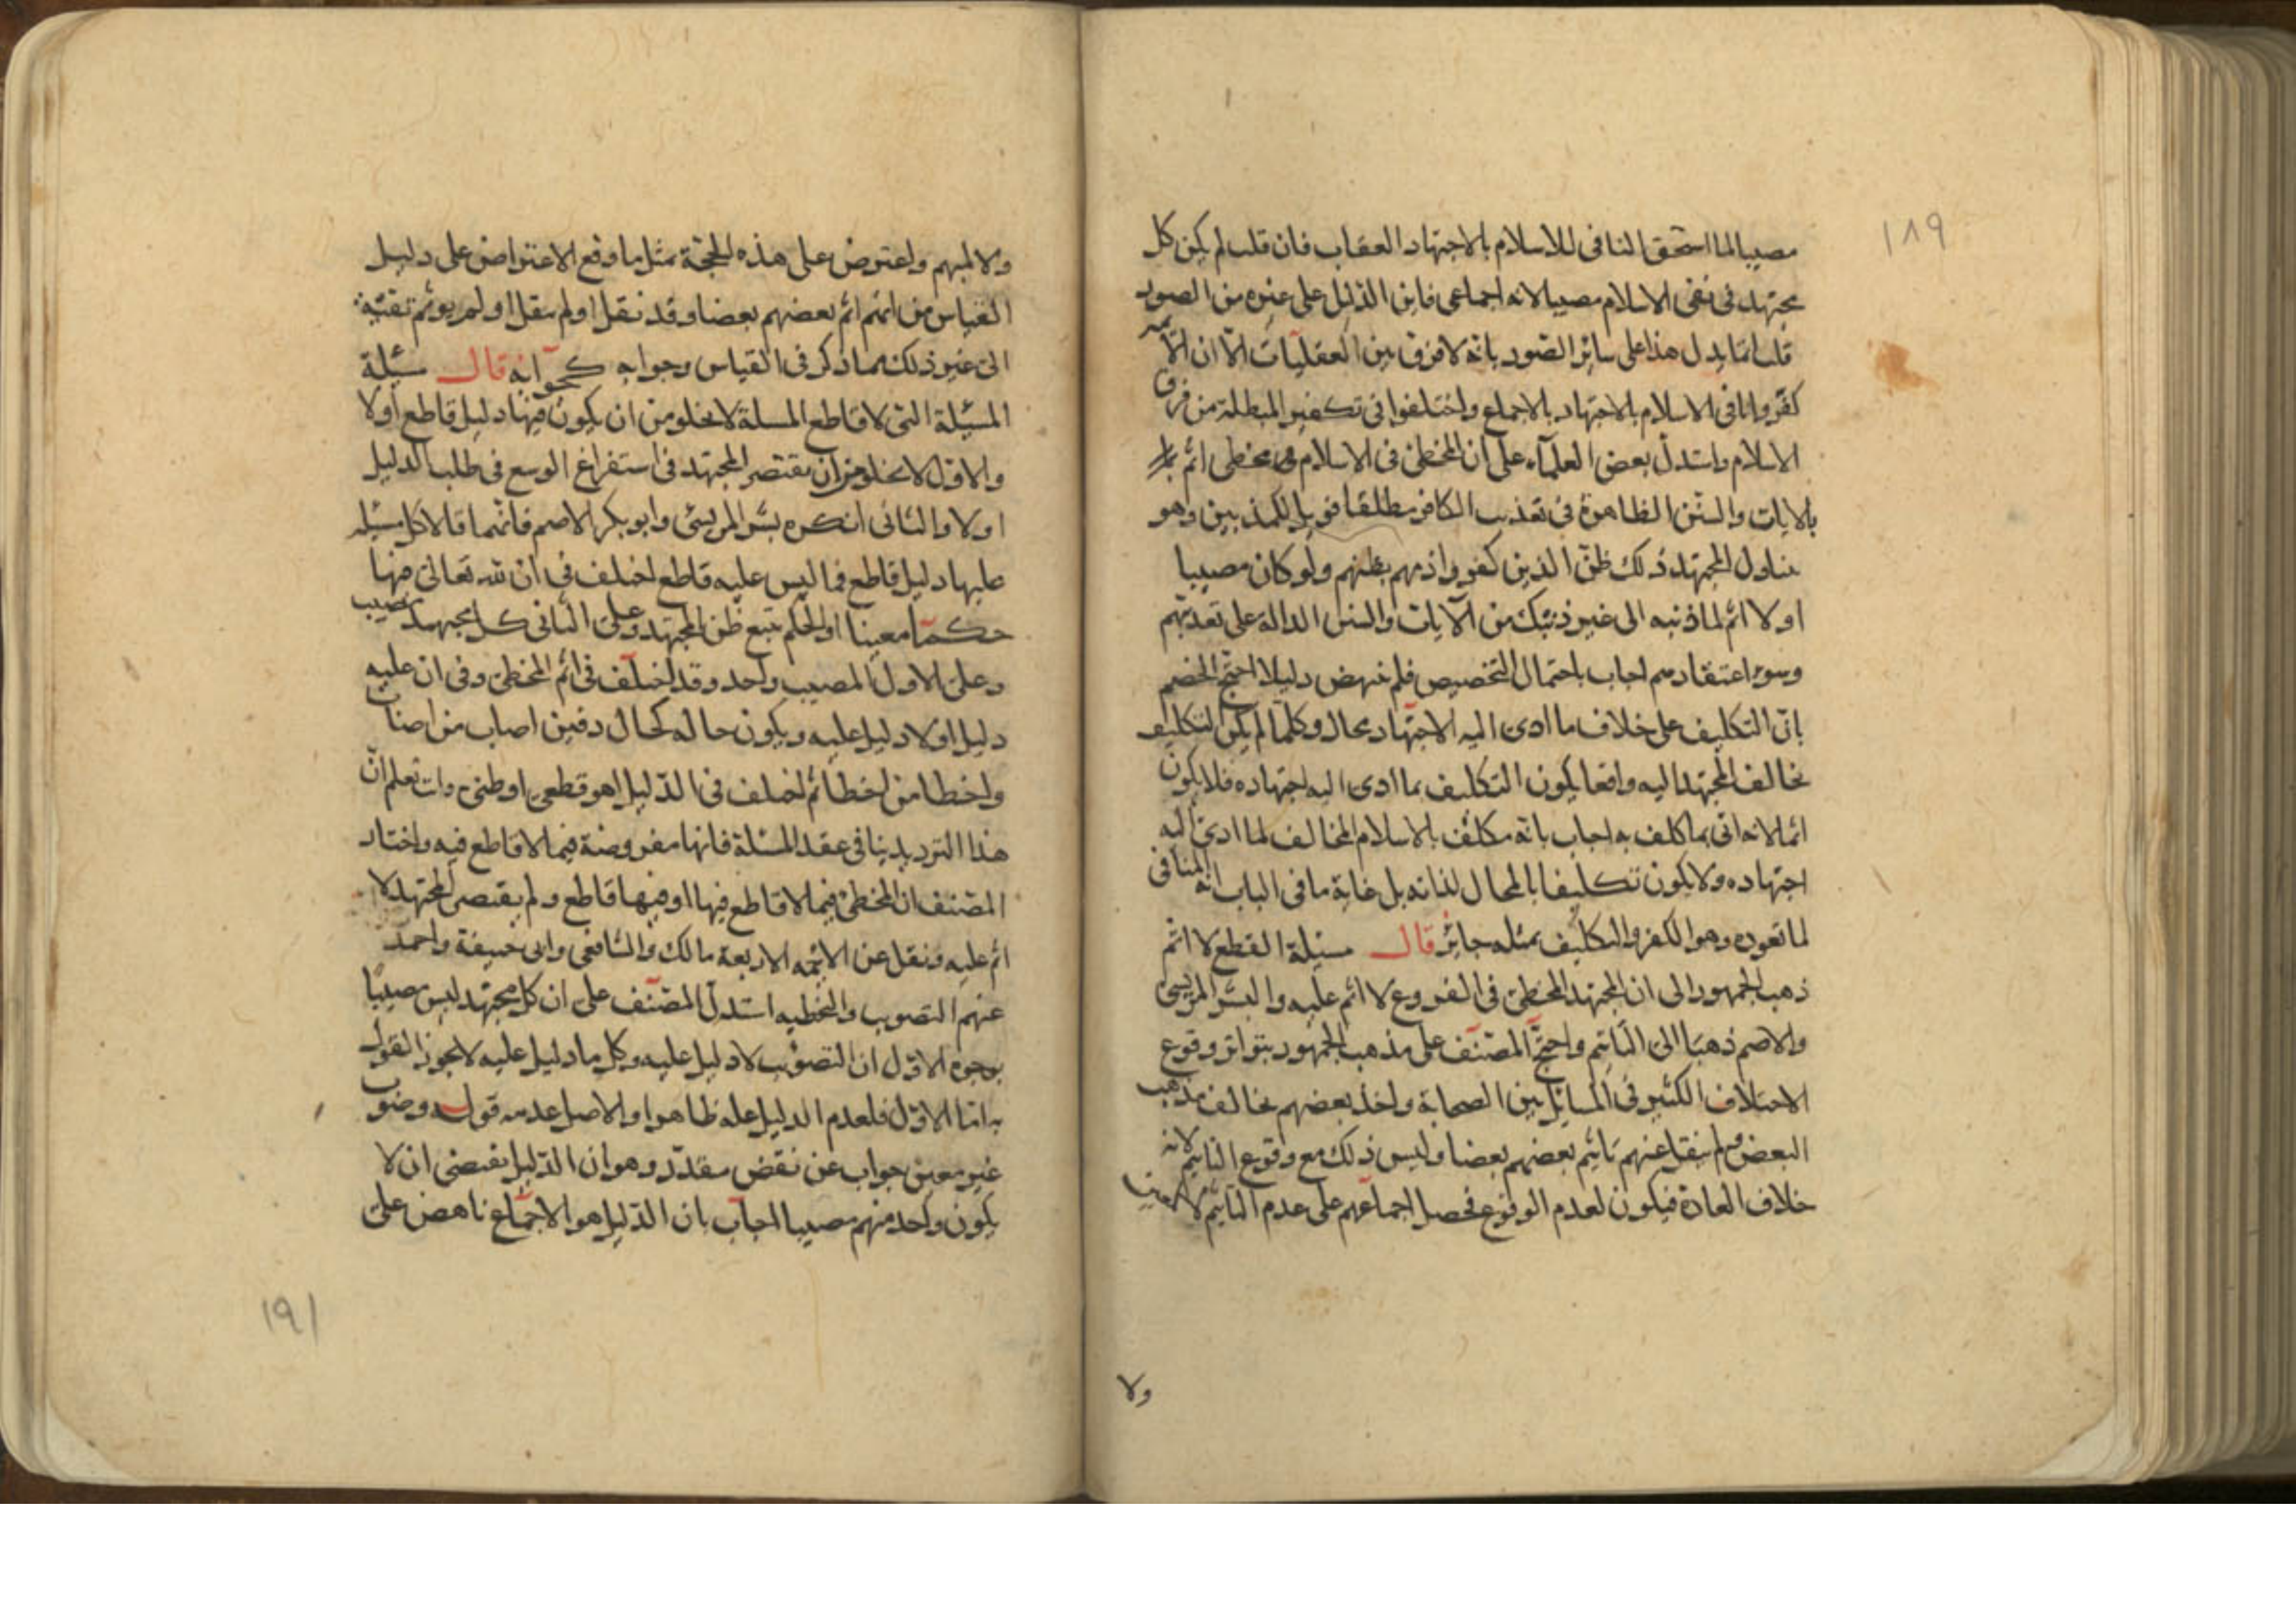 ١٨٩
مصيبا لما استحق النافى للاسلام بالاجتهاد العقاب فان قلت لم يكن كل
مجتهد فى نفى الاسلام مصيبا لانه اجماعى فاين الدليل على غيره من الصور
قلت انما يدل هذا على سائر الصور بانه لا فرق بين العقليات الا ان
كفروا نافى الاسلام بالاجتهاد بالاجماع واختلفوا فى تكفير المبطلة من فرق
الاسلام واستدل بعض العلماء على ان المخطئ فى الاسلام مخطى اثم
بالايات والسنن الظاهرة فى تعذيب الكافر مطلقا فويل للمكذبين وهو
يتناول المجتهد ذلك ظن الذين كفروا ذمهم بظنهم ولو كان مصيبا
او لا اثم لما ذنبه الى غير ذينك من الآيات والسنن الدالة على تعذيبهم
وسوء اعتقادهم اجاب باحتمال التخصيص فلم ينهض دليلا احتج الخصم
بان التكليف على خلاف ما ادى اليه الاجتهاد محال وكلما لم يكن التكليف
بخالف المجتهد اليه واقعا يكون التكليف بما ادى اليه اجتهاده فلا يكون
اثما لانه اتى بما كلف به اجاب بانه مكلف بالاسلام المخالف لما ادى اليه
اجتهاده ولا يكون تكليفا بالمحال لذاته بل غاية ما فى الباب انه المنافى
لما تعوده وهو الكفر والتكليف بمثله جائز قال مسئلة القطع لا اثم
ذهب الجمهور الى ان المجتهد المخطئ فى الفروع لا اثم عليه والبشر المريسى
والاصم ذهبا الى التاثيم واحتج المصنف على مذهب الجمهور بتواتر وقوع
الاختلاف الكثير فى المسائل بين الصحابة واخذ بعضهم بخالف مذهب
البعض ولم ينقل عنهم تاثيم بعضهم بعضا وليس ذلك مع وقوع التاثيم لانه
خلاف العادة فيكون لعدم الوقوع فحصل اجماعهم على عدم التاثيم لا لمعين
ولا
ولا لمبهم واعترض على هذه الحجة بمثل ما وقع الاعتراض على دليل
القياس من انهم اثم بعضهم بعضا وقد نقل او لم ينقل او لم يوثم تقية
الى غير ذلك مما ذكر فى القياس وجوابه كجوابه قال مسئلة
المسئلة التى لا قاطع المسلة لا يخلو من ان يكون فيها دليل قاطع او لا
والاول لا يخلو من ان يقتصر المجتهد فى استفراغ الوسع فى طلب الدليل
او لا والثانى انكره بشر المريسى وابو بكر الاصم فانهما قالا كل مسئلة
عليها دليل قاطع فما ليس عليه قاطع اختلف فى ان لله تعالى فيها
حكما معينا او الحكم تبع ظن المجتهد وعلى الثانى كل مجتهد مصيب
وعلى الاول المصيب واحد وقد اختلف فى اثم المخطئ وفى ان عليه
دليل او لا دليل عليه ويكون حاله كحال دفين اصاب من اصاب
واخطا من اخطا ثم اختلف فى الدليل اهو قطعى او ظنى وانت تعلم ان
هذا الترديد ينافى عقد المسئلة فانها مفروضة فيما لا قاطع فيه واختار
المصنف ان المخطئ فيما لا قاطع فيها او فيها قاطع ولم يقتصر المجتهد لا
اثم عليه ونقل عن الائمه الاربعة مالك والشافعى وابى حنيفة واحمد
عنهم التصويب والتخطيه استدل المصنف على ان كل مجتهد ليس مصيبا
بوجوه الاول ان التصويب لا دليل عليه وكل ما دليل عليه لا يجوز القول
به اما الاول فلعدم الدليل عله ظاهرا والاصل عدمه قوله وصوب
غير معين جواب عن نقض مقدر وهو ان الدليل يقتضى ان لا
يكون واحد منهم مصيبا اجاب بان الدليل هو الاجماع ناهض على
١٩١